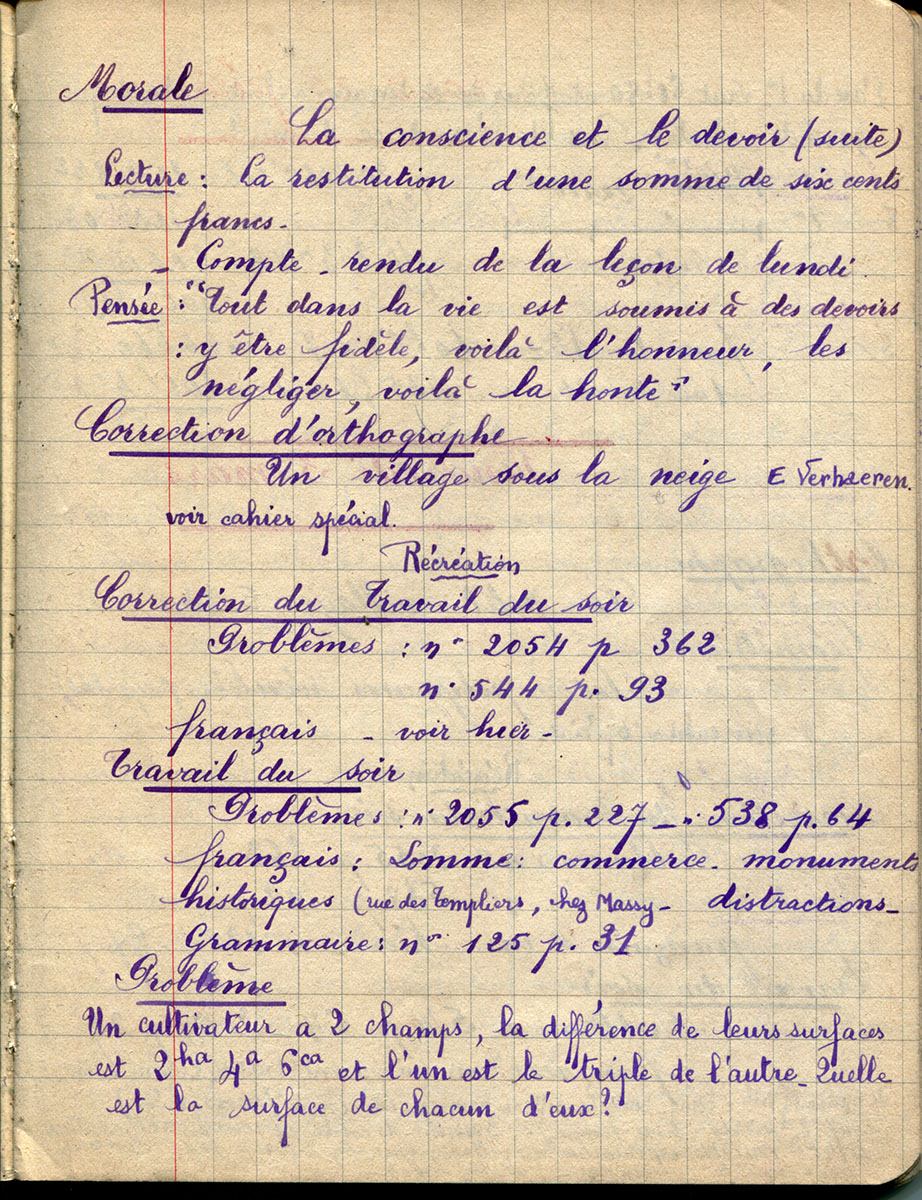 Morale
La conscience et le devoir (suite)
Lecture : La restitution d'une somme de six cents
francs.
- Compte-rendu de la leçon de lundi.
Pensée : "Tout dans la vie est soumis à des devoirs
: y être fidèle, voilà l'honneur, les
négliger, voilà la honte"
Correction d'orthographe
Un village sous la neige E Verhaeren.
voir cahier spécial.
Récréation
Correction du Travail du soir
Problèmes : n° 2054 p 362
n° 544 p. 93
français - voir hier -
Travail du soir
Problèmes : n° 2055 p. 227 - n° 538 p. 64
français : Somme : commerce - monuments
historiques (rue des Templiers, chez Massy - distractions -
Grammaire : n° 125 p. 31
Problème
Un cultivateur a 2 champs, la différence de leurs surfaces
est 2 ha 4 a 6 ca et l'un est le triple de l'autre. Quelle
est la surface de chacun d'eux ?